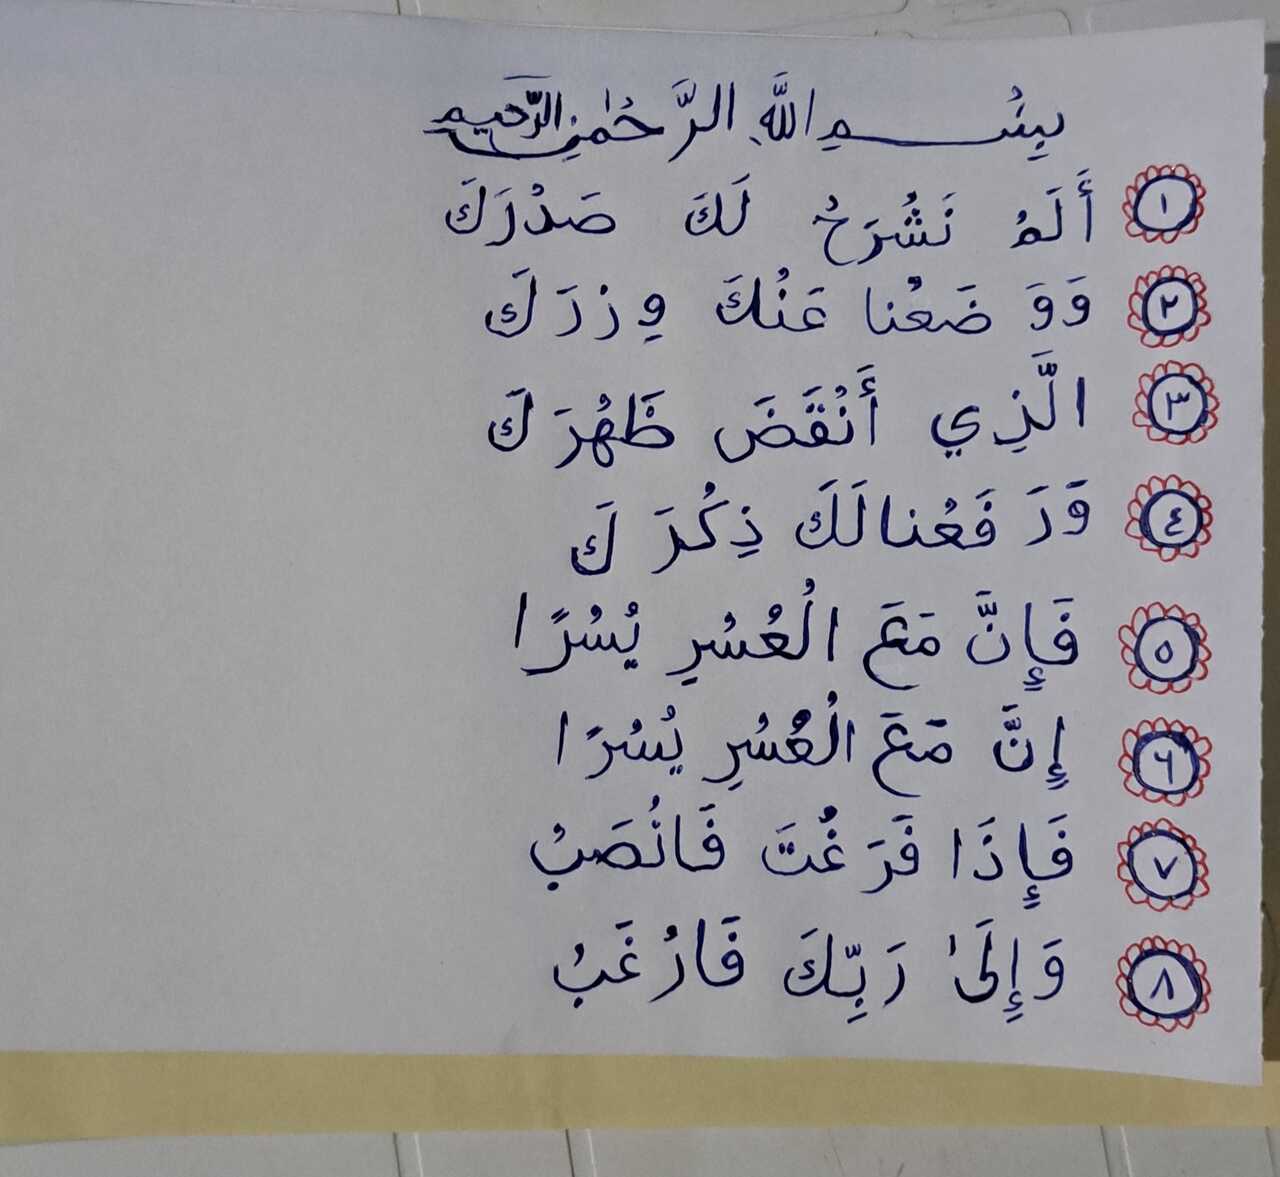 بِسْمِ اللَّهِ الرَّحْمٰنِ الرَّحِيمِ
١ أَلَمْ نَشْرَحْ لَكَ صَدْرَكَ
٢ وَوَضَعْنا عَنْكَ وِزرَكَ
٣ الَّذِي أَنْقَضَ ظَهْرَكَ
٤ وَرَفَعْنا لَكَ ذِكْرَكَ
٥ فَإِنَّ مَعَ الْعُسْرِ يُسْرًا
٦ إِنَّ مَعَ الْعُسْرِ يُسْرًا
٧ فَإِذَا فَرَغْتَ فَانْصَبْ
٨ وَإِلَىٰ رَبِّكَ فَارْغَبْ